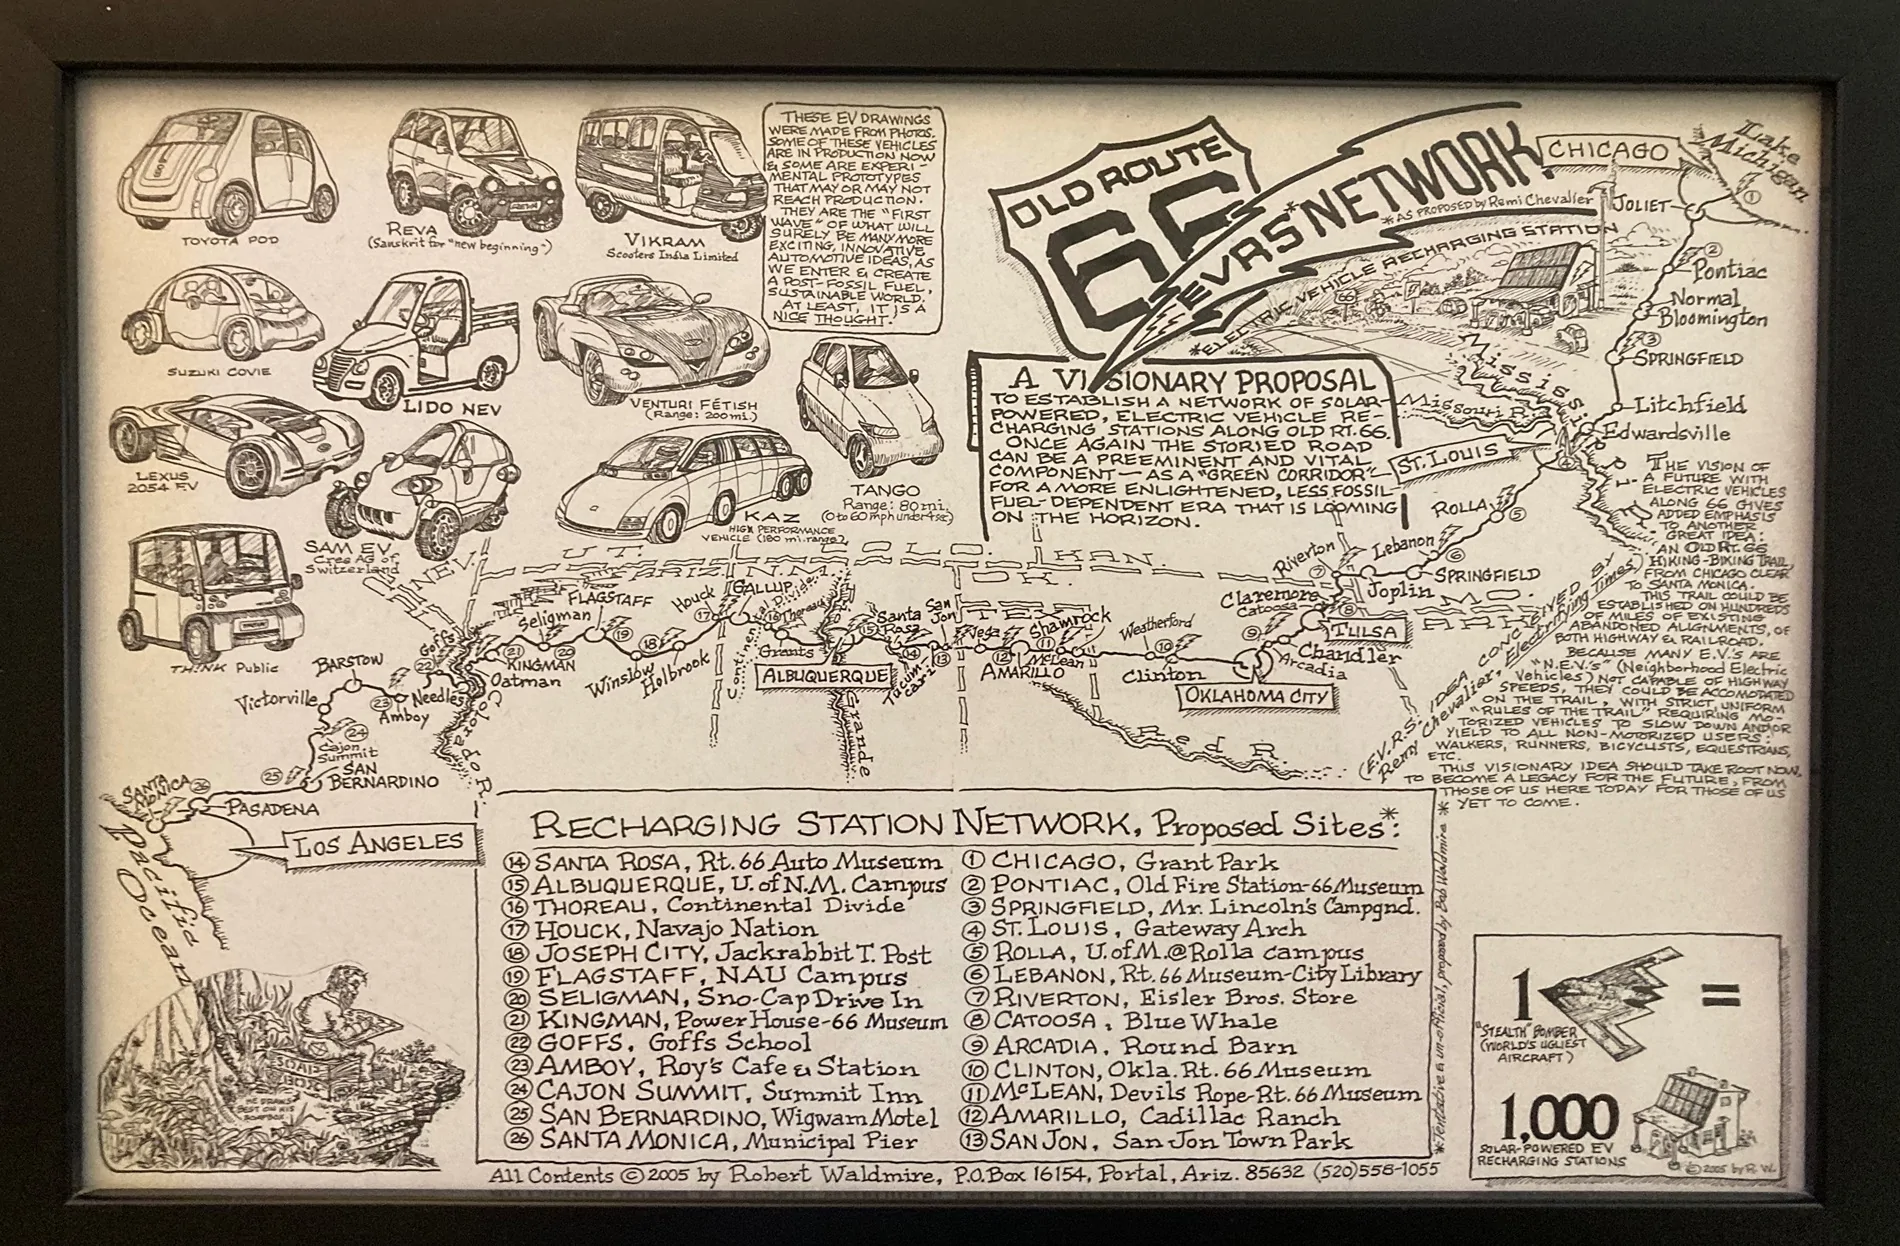 TOYOTA POD
REVA
(Sanskrit for "new beginning")
VIKRAM
Scooters India Limited
SUZUKI COVIE
LIDO NEV
VENTURI FÉTISH
(Range: 200 mi.)
LEXUS
2054 EV
SAM EV
Cree AG of
Switzerland
KAZ
HIGH PERFORMANCE
VEHICLE (180 mi. range)
TANGO
Range: 80 mi.
(0 to 60 mph under 4 sec)
TH!NK Public
THESE EV DRAWINGS
WERE MADE FROM PHOTOS.
SOME OF THESE VEHICLES
ARE IN PRODUCTION NOW
& SOME ARE EXPERI-
MENTAL PROTOTYPES
THAT MAY OR MAY NOT
REACH PRODUCTION.
THEY ARE THE "FIRST
WAVE" OF WHAT WILL
SURELY BE MANY MORE
EXCITING, INNOVATIVE
AUTOMOTIVE IDEAS, AS
WE ENTER & CREATE
A POST-FOSSIL FUEL,
SUSTAINABLE WORLD.
AT LEAST, IT IS A
NICE THOUGHT.
OLD ROUTE
66
EVRS* NETWORK
*AS PROPOSED by Remi Chevalier
*ELECTRIC VEHICLE RECHARGING STATION
66
A VISIONARY PROPOSAL
TO ESTABLISH A NETWORK OF SOLAR-
POWERED, ELECTRIC VEHICLE RE-
CHARGING STATIONS ALONG OLD RT. 66.
ONCE AGAIN THE STORIED ROAD
CAN BE A PREEMINENT AND VITAL
COMPONENT—AS A "GREEN CORRIDOR"—
FOR A MORE ENLIGHTENED, LESS FOSSIL-
FUEL-DEPENDENT ERA THAT IS LOOMING
ON THE HORIZON.
CHICAGO
Lake
Michigan
1
JOLIET
2
Pontiac
Normal
Bloomington
3
SPRINGFIELD
Litchfield
Edwardsville
Mississippi R.
Missouri R.
ST. LOUIS
4
ROLLA
5
Lebanon
6
SPRINGFIELD
Riverton
7
Joplin
Claremore
Catoosa
8
TULSA
9
Chandler
Arcadia
OKLAHOMA CITY
Weatherford
10
Clinton
Shamrock
11
McLean
12
AMARILLO
Vega
San
Jon
13
Tucumcari
Santa
Rosa
14
15
ALBUQUERQUE
Grants
Thoreau
16
Continental Divide
GALLUP
Houck
17
Holbrook
18
Winslow
19
FLAGSTAFF
Seligman
20
21
KINGMAN
Oatman
Goffs
22
Needles
23
Amboy
BARSTOW
Victorville
24
Cajon
Summit
SAN
BERNARDINO
25
PASADENA
26
SANTA
MONICA
LOS ANGELES
Pacific
Ocean
Colorado R.
Grande
Red R.
NEV.
UT.
COLO.
KAN.
ARIZ.
N.M.
OK.
TEX.
MO.
ARK.
THE VISION OF
A FUTURE WITH
ELECTRIC VEHICLES
ALONG 66 GIVES
ADDED EMPHASIS
TO ANOTHER
GREAT IDEA:
AN OLD RT. 66
HIKING-BIKING TRAIL,
FROM CHICAGO CLEAR
TO SANTA MONICA.
THIS TRAIL COULD BE
ESTABLISHED ON HUNDREDS
OF MILES OF EXISTING
ABANDONED ALIGNMENTS, OF
BOTH HIGHWAY & RAILROAD.
BECAUSE MANY E.V.'S ARE
"N.E.V.'S" (Neighborhood Electric
Vehicles) NOT CAPABLE OF HIGHWAY
SPEEDS, THEY COULD BE ACCOMODATED
ON THE TRAIL, WITH STRICT, UNIFORM
"RULES OF THE TRAIL" REQUIRING MO-
TORIZED VEHICLES TO SLOW DOWN AND/OR
YIELD TO ALL NON-MOTORIZED USERS:
WALKERS, RUNNERS, BICYCLISTS, EQUESTRIANS,
ETC.
THIS VISIONARY IDEA SHOULD TAKE ROOT NOW,
TO BECOME A LEGACY FOR THE FUTURE, FROM
THOSE OF US HERE TODAY FOR THOSE OF US
YET TO COME.
(E.V.R.S. IDEA CONCEIVED BY
Remy Chevalier, Electrifying Times)
RECHARGING STATION NETWORK, Proposed Sites*:
14 SANTA ROSA, Rt. 66 Auto Museum
15 ALBUQUERQUE, U. of N.M. Campus
16 THOREAU, Continental Divide
17 HOUCK, Navajo Nation
18 JOSEPH CITY, Jackrabbit T. Post
19 FLAGSTAFF, NAU Campus
20 SELIGMAN, Sno-Cap Drive In
21 KINGMAN, Power House-66 Museum
22 GOFFS, Goffs School
23 AMBOY, Roy's Cafe & Station
24 CAJON SUMMIT, Summit Inn
25 SAN BERNARDINO, Wigwam Motel
26 SANTA MONICA, Municipal Pier
1 CHICAGO, Grant Park
2 PONTIAC, Old Fire Station-66 Museum
3 SPRINGFIELD, Mr. Lincoln's Campgnd.
4 ST. LOUIS, Gateway Arch
5 ROLLA, U. of M. @ Rolla campus
6 LEBANON, Rt. 66 Museum-City Library
7 RIVERTON, Eisler Bros. Store
8 CATOOSA, Blue Whale
9 ARCADIA, Round Barn
10 CLINTON, Okla. Rt. 66 Museum
11 McLEAN, Devils Rope-Rt. 66 Museum
12 AMARILLO, Cadillac Ranch
13 SAN JON, San Jon Town Park
*Tentative & un-official, proposed by Bob Waldmire *
SOAP
BOX
HE DRAWS
BEST ON HIS
SOAPBOX!
1
=
"STEALTH" BOMBER
(WORLD'S UGLIEST
AIRCRAFT)
1,000
SOLAR-POWERED EV
RECHARGING STATIONS
© 2005 by R.W.
All Contents © 2005 by Robert Waldmire, P.O. Box 16154, Portal, Ariz. 85632 (520) 558-1055